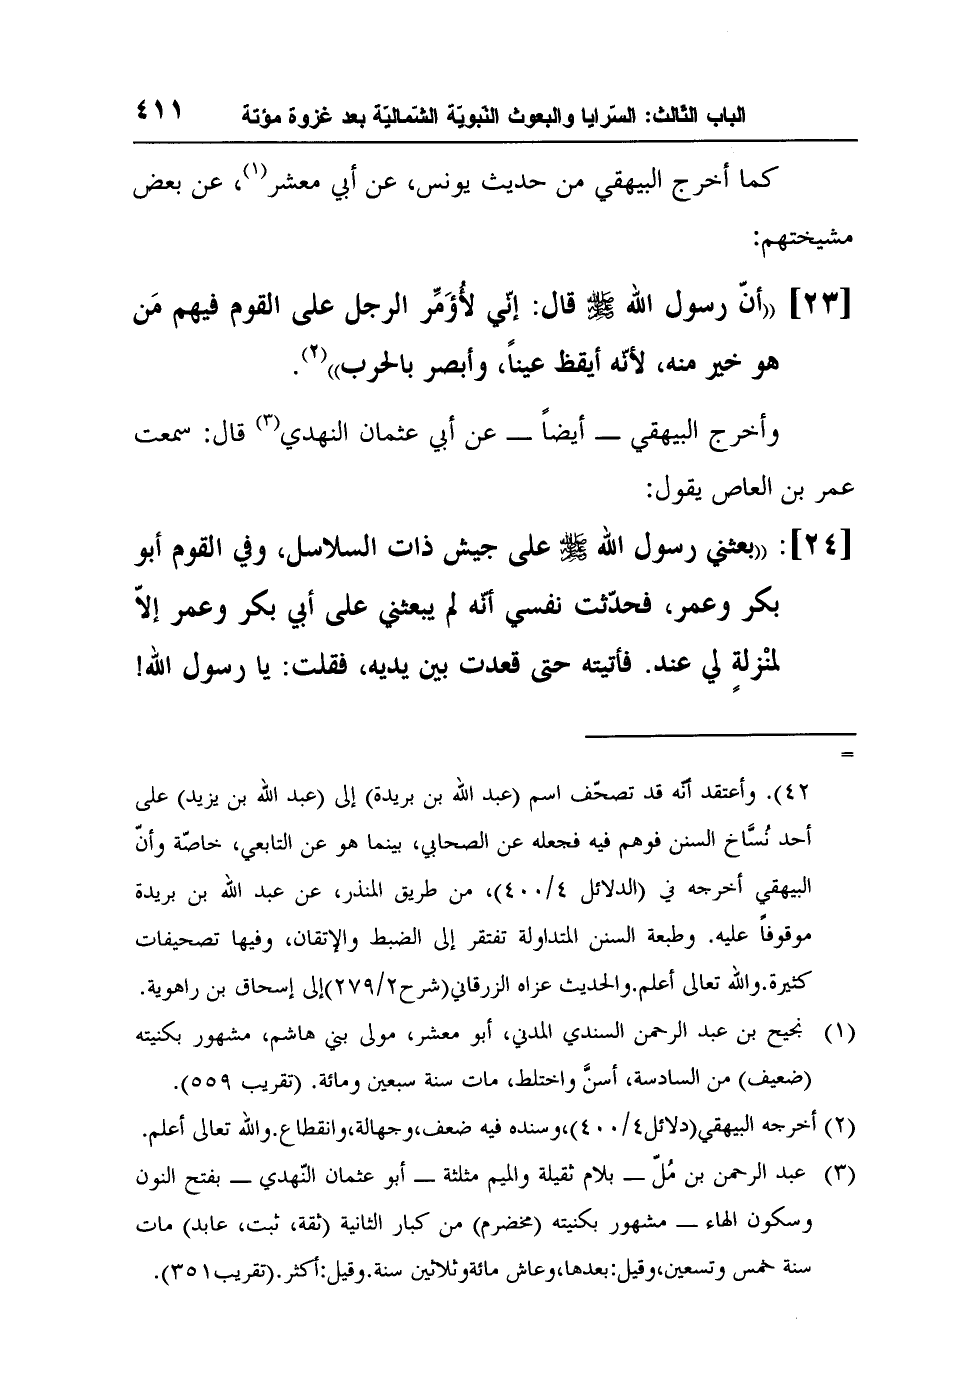 الباب الثّالث: السّرايا والبعوث النّبويّة الشّماليّة بعد غزوة مؤتة ٤١١
كما أخرج البيهقي من حديث يونس، عن أبي معشر(١)، عن بعض
مشيختهم:
[٢٣] ((أنّ رسول الله ﷺ قال: إنّي لأُؤَمِّر الرجل على القوم فيهم مَن
هو خير منه، لأنّه أيقظ عيناً، وأبصر بالحرب))(٢).
وأخرج البيهقي ــ أيضاً ــ عن أبي عثمان النهدي(٣) قال: سمعت
عمر بن العاص يقول:
[٢٤]: ((بعثني رسول الله ﷺ على جيش ذات السلاسل، وفي القوم أبو
بكر وعمر، فحدّثت نفسي أنّه لم يبعثني على أبي بكر وعمر إلاّ
لمنْزلةٍ لي عند. فأتيته حتى قعدت بين يديه، فقلت: يا رسول الله!
=
٤٢). وأعتقد أنّه قد تصحّف اسم (عبد الله بن بريدة) إلى (عبد الله بن يزيد) على
أحد نُسَّاخ السنن فوهم فيه فجعله عن الصحابي، بينما هو عن التابعي، خاصّة وأنّ
البيهقي أخرجه في (الدلائل ٤/٤٠٠)، من طريق المنذر، عن عبد الله بن بريدة
موقوفاً عليه. وطبعة السنن المتداولة تفتقر إلى الضبط والإتقان، وفيها تصحيفات
كثيرة.والله تعالى أعلم.والحديث عزاه الزرقاني(شرح٢/٢٧٩)إلى إسحاق بن راهوية.
(١) نجيح بن عبد الرحمن السندي المدني، أبو معشر، مولى بني هاشم، مشهور بكنيته
(ضعيف) من السادسة، أسنَّ واختلط، مات سنة سبعين ومائة. (تقريب ٥٥٩).
(٢) أخرجه البيهقي(دلائل٤/٤٠٠)،وسنده فيه ضعف،وجهالة،وانقطاع.والله تعالى أعلم.
(٣) عبد الرحمن بن مُلّ ــ بلام ثقيلة والميم مثلثة ــ أبو عثمان النّهدي ــ بفتح النون
وسكون الهاء ــ مشهور بكنيته (مخضرم) من كبار الثانية (ثقة، ثبت، عابد) مات
سنة خمس وتسعين،وقيل:بعدها،وعاش مائةوثلاثين سنة.وقيل:أكثر.(تقريب٣٥١).